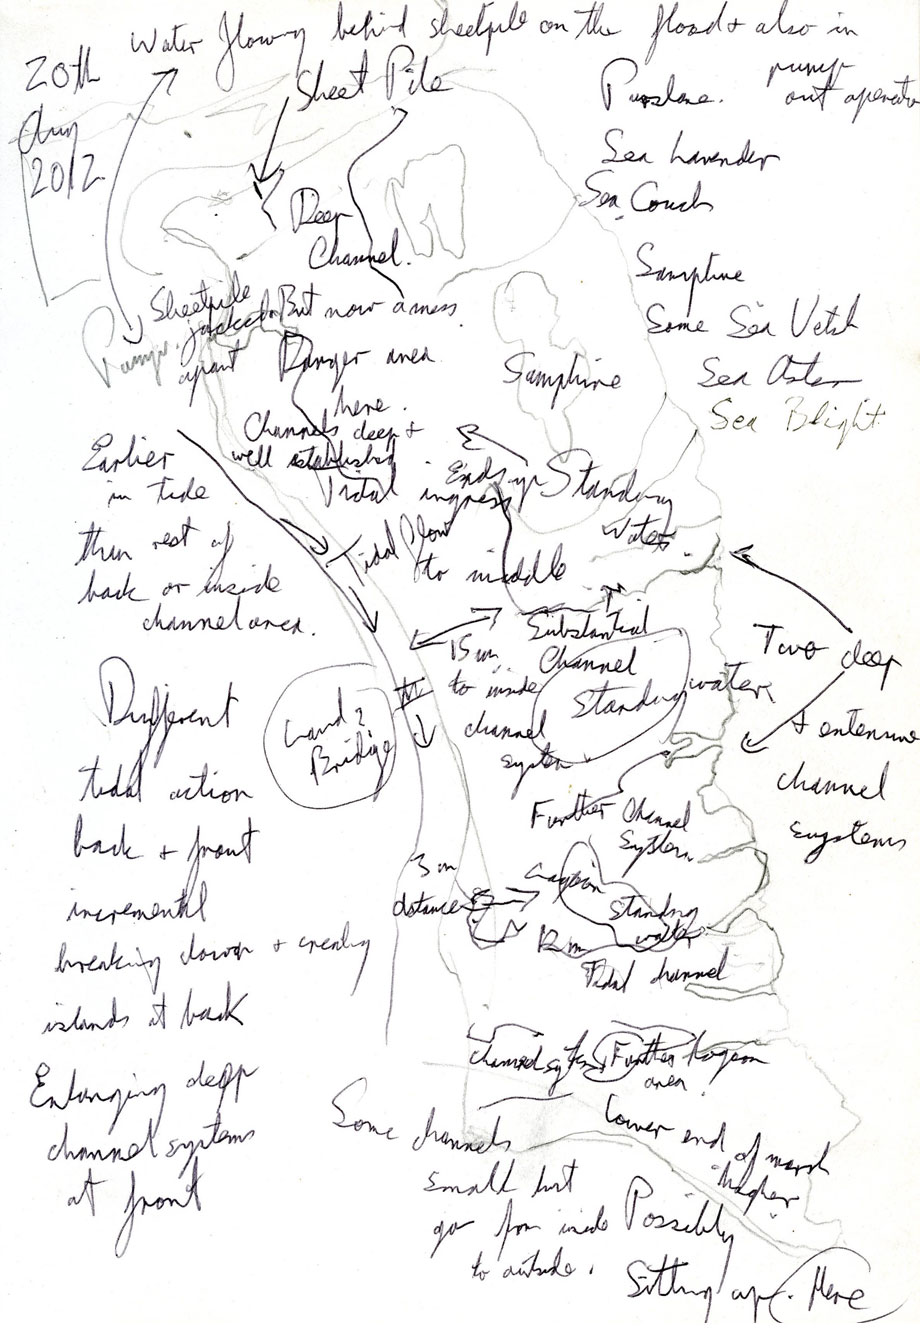 Water flowing behind sheetpile on the flood + also in
pump
out operation
20th
Aug
2012
Sheet Pile
Purslane.
Sea Lavender
Sea Couch
Deep
Channel.
Samphire
Sheetpile
jacked
apart
But now a mess
Some Sea Vetch
Pump.
Danger area
here.
Samphire
Sea Aster
Sea Blight
Channels deep +
well established
Earlier
in tide
than rest of
back or inside
channel area.
Tidal ingress
Ends up
Standing
Water.
Tidal flow
to middle
Substantial
Channel
15 m
to inside
channel
system
Standing water
Two deep
+ extensive
channel
systems
Land
Bridge
Different
tidal action
back + front
incremental
breaking down + creating
islands at back
Further Channel
System
3 m
distance
Lagoon
Standing
water
12 m
Tidal channel
Channel system
Further Lagoon
area
Enlarging deep
channel systems
at front
Some channels
small but
go from inside
to outside.
Lower end of marsh
higher
Possibly
Silting up. Here